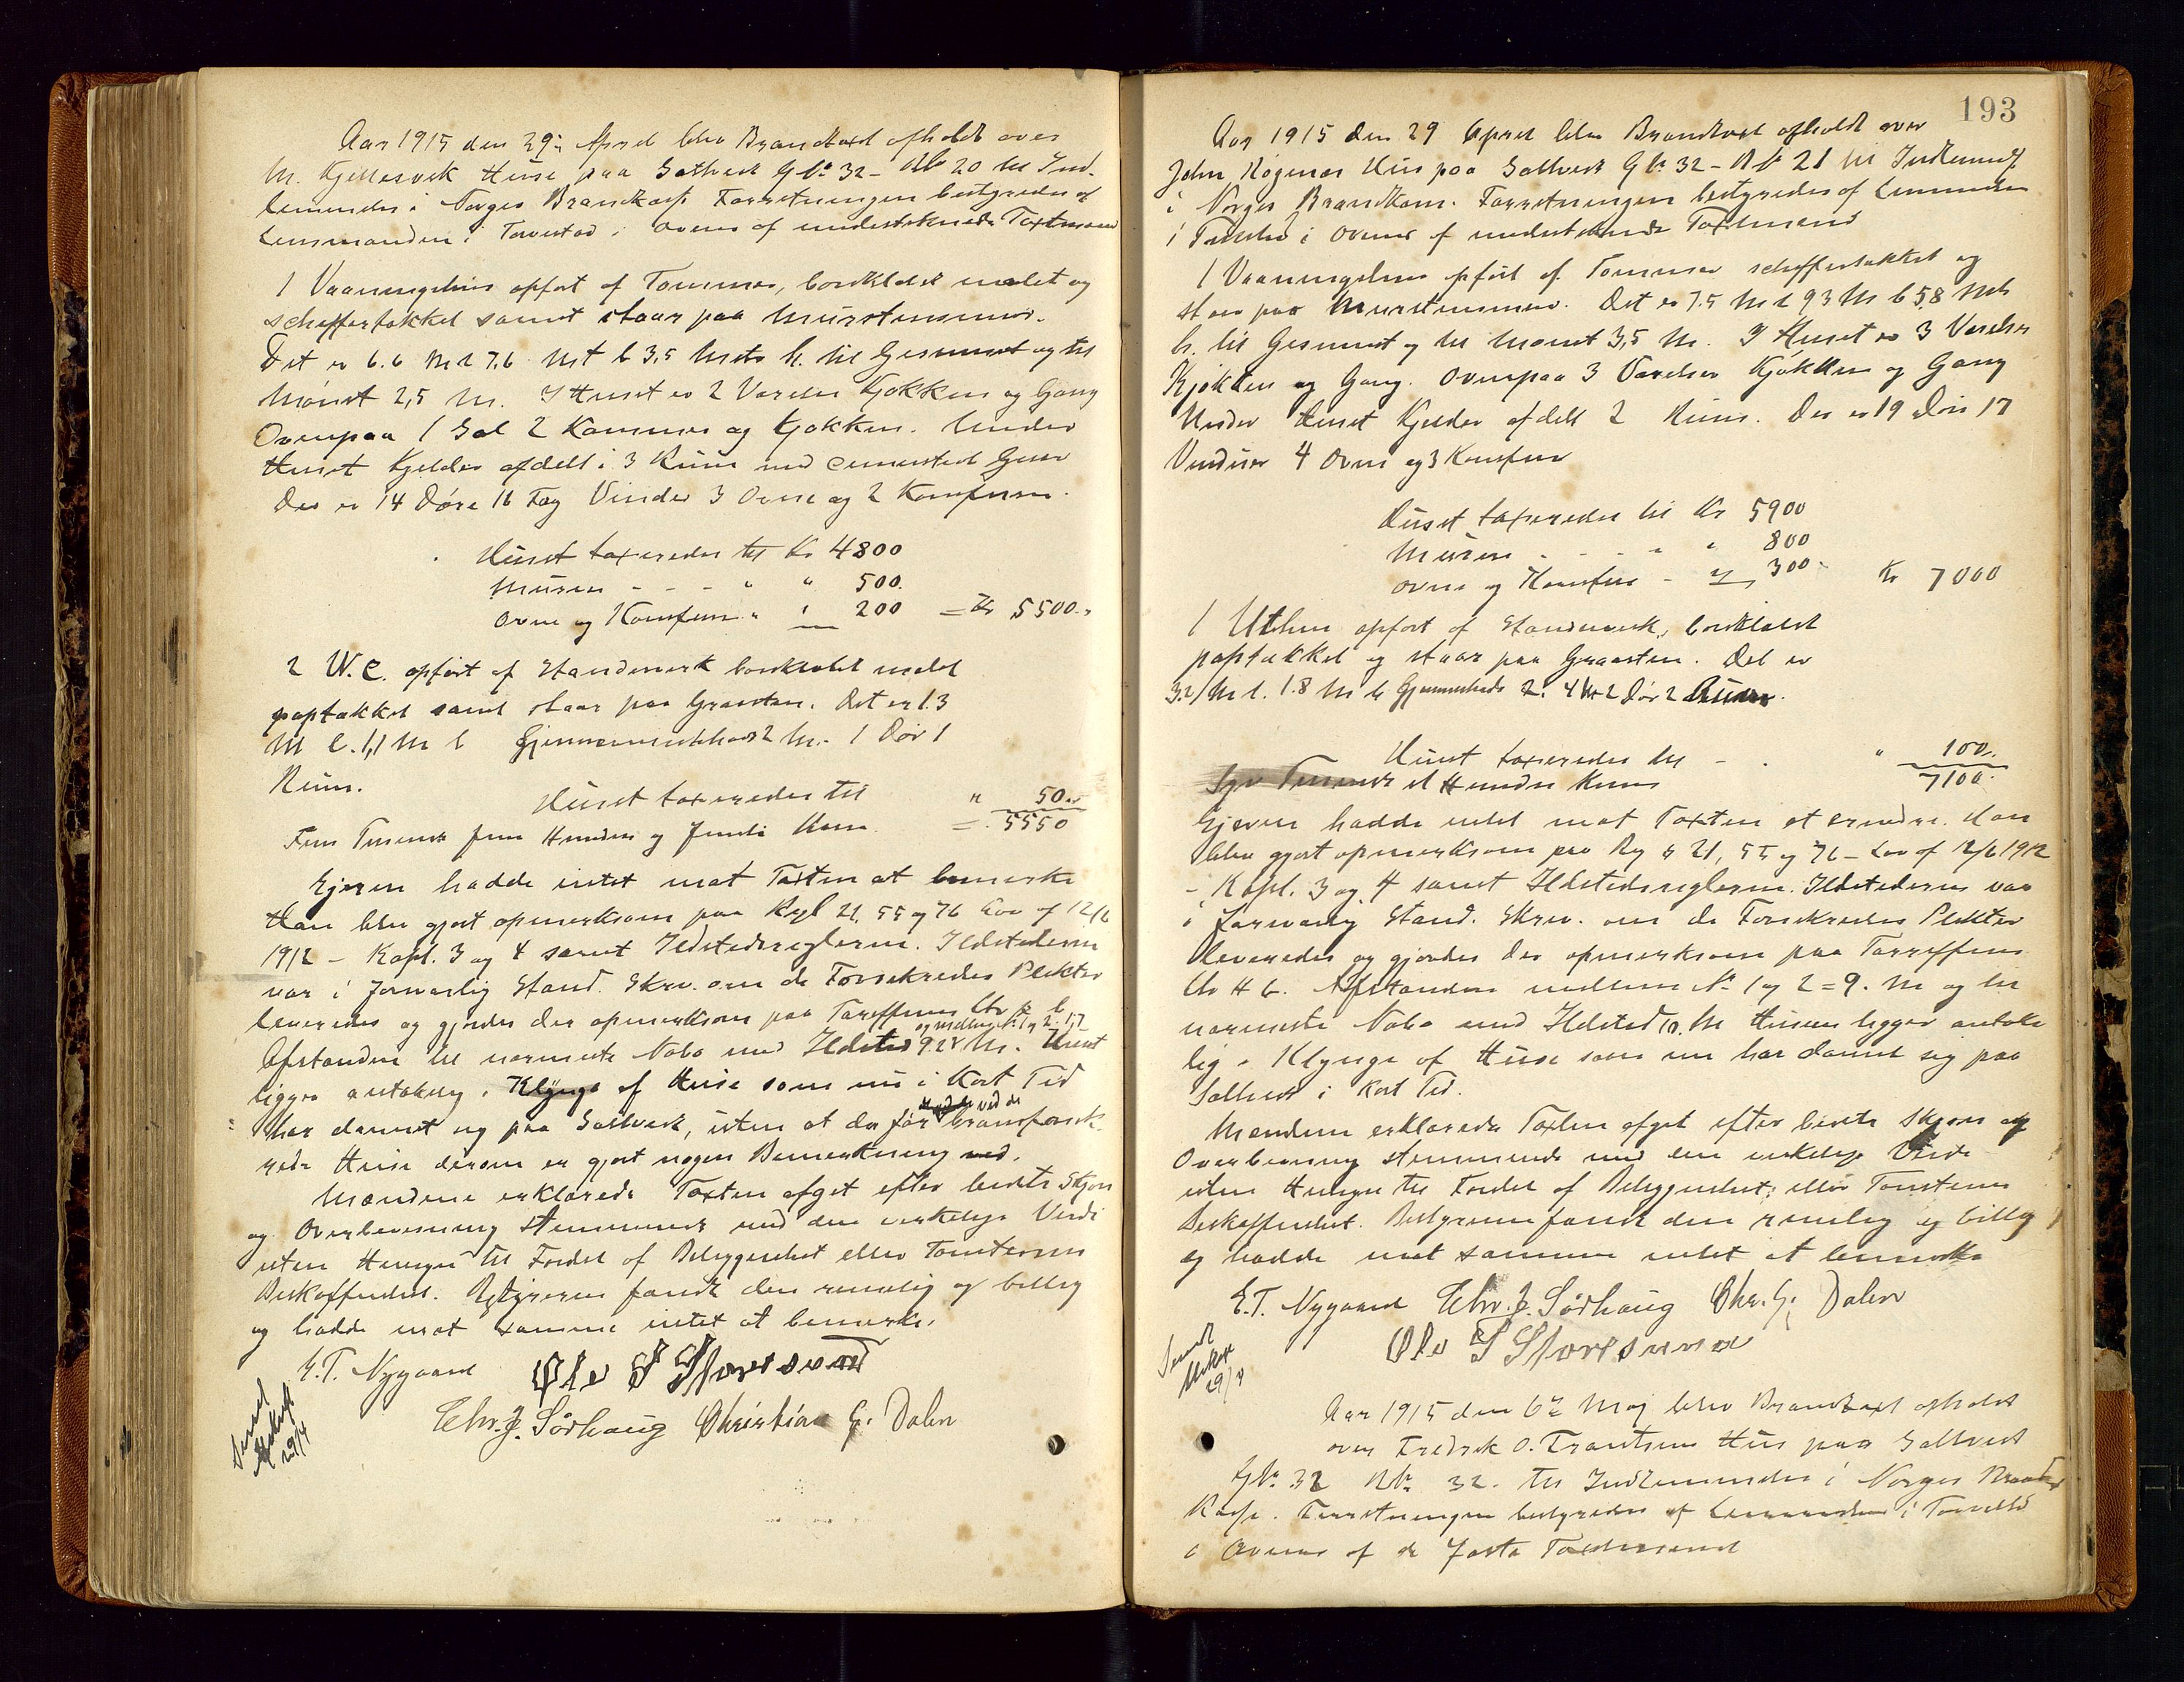 Aar 1915 den 29. April blev Brandtaxt afholdt over
M. Kjellesvik Huse paa Saltveit Gbr 32 - Nb 20 til Ind-
lemmelse i Norges Brandkasse Forretningen bestyredes af
Lensmanden i Torvestad i Overvær af undertegnede Taxtmænd
1 Vaaningshus opført af Tømmer, bordklædt malet og
schiffertækket samt staar paa Murstensmur.
Det er 6.6 M l 7,6 Mt b 3,5 Mets h. til Gesimset og til
Mønet 2,5 M. I Huset er 2 Værelser Kjøkken og Gang
Ovenpaa 1 Sal 2 Kammer og Kjøkken. Under
Huset Kjelder afdelt i 3 Rum med cementert Gulv
Der er 14 Døre 16 Fag Vinder 3 Ovne og 2 Komfurer.
Huset taxeredes til Kr 4800
Muren - - - " " 500.
Ovne og Komfurer " " 200 = Kr 5500.
2 W.C. opført af Standværk bordklædt malet
paptækket samt staar paa Graasten. Det er 1.3
M l. 1,1 M b Gjennemsnitshøide 2 M. 1 Dør 1
Rum.
Huset taxeredes til " 50.
Fem Tusende fem Hundre og femti Kroner = 5550
Ejeren hadde intet mot Taxten at bemerke
Han blev gjort opmerksom paa Rgl 21, 55 og 76 Lov af 12/6
1912 - Kapl. 3 og 4 samt Ildstedsreglerne. Ildstederne
var i forsvarlig Stand. Skrv. om de Forsikredes Plikter
leveredes og gjordes der opmerksom paa Tariffens Litr
Afstanden til nærmeste Nabo med Ildsted 9.28 M. Huset
ligger antakelig i Klynge af Huse som nu i Kort Tid
har dannet sig paa Saltveit, uten at der før ved de brandforsik-
rede Huse derom er gjort nogen Bemerkning
Mændene erklærede Taxten afgit efter bedste Skjøn
og Overbevisning stemmende med den virkelige Verdi
uten Hensyn til Fordel af Beliggenhet eller Tomtens
Beskaffenhed. Bestyreren fandt den rimelig og billig
og hadde mot samme intet at bemerke.
E.T. Nygaard Ole S Storesund
Chr. J. Sørhaug Christian G. Dalen
Sendt
Utskrift
29/4
193
Aar 1915 den 29 April blev Brandtaxt afholdt over
John Hus paa Saltveit Gbr 32 - Nb 21 til Indlemmelse
i Norges Brandkasse. Forretningen bestyredes af Lensmanden
i Torvestad i Overvær af undertegnede Taxtmænd
1 Vaaningshus opført af Tømmer schiffertækket og
staar paa Murstensmur. Det er 7.5 M l 9.3 M b 5.8 Mts
h. til Gesimset og til Mønet 3,5 M. I Huset er 3 Værelser
Kjøkken og Gang. Ovenpaa 3 Værelser Kjøkken og Gang
Under Huset Kjelder afdelt 2 Rum. Der er 19 Døre 17
Vinduer 4 Ovne og 3 Komfurer
Huset taxeredes til Kr 5900
Muren - - - " " 800
Ovne og Komfurer - " 300 Kr 7000
1 Uthus opført af Standværk, bordklædt
paptækket og staar paa Graasten. Det er
3.2 M l. 1.8 M b Gjennemsnitshøide 2.4 M 2 Dør 2 Rum.
Huset taxeredes til - " 100.
Syv Tusende et Hundre Kroner 7100.
Ejeren hadde intet mot Taxten at erindre. Han
blev gjort opmerksom paa Rg § 21, 55 og 76 - Lov af 12/6 1912
- Kapl. 3 og 4 samt Ildstedsreglerne. Ildstederne var
i forsvarlig Stand. Skrv. om de Forsikredes Plikter
leveredes og gjordes der opmerksom paa Tariffens
Afstanden mellem N. 1 og 2 = 9. M og til
nærmeste Nabo med Ildsted 10. M Husene ligger antake
lig i Klynge af Huse som nu har dannet sig paa
Saltveit i Kort Tid.
Mændene erklærede Taxten afgit efter bedste Skjøn og
Overbevisning stemmende med den virkelige Verdi
uten Hensyn til Fordel af Beliggenhet eller Tomtens
Beskaffenhet. Bestyreren fandt den rimelig og billig
og hadde mot samme intet at bemerke
E.T. Nygaard Chr. J. Sørhaug Chr. G. Dalen
Ole S Storesund
Sendt
Utskrift
29/4
Aar 1915 den 6te Maj blev Brandtaxt afholdt
over Fredrik O. Hus paa Saltveit
Gbr. 32 Nbr. 32. til Indlemmelse i Norges Brand
kasse. Forretningen bestyredes af Lensmanden i Torvestad
i Overvær af de faste Taxtmænd